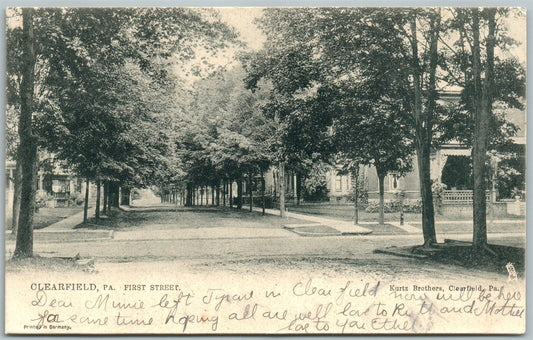 CLEARFIELD, PA. FIRST STREET.
Kurtz Brothers, Clearfield, Pa.
Dear Minie left Tyrav in Clearfield now will be here
for some time hoping all are well las to Ruth and Mother
las to you Ethel
Printed in Germany.